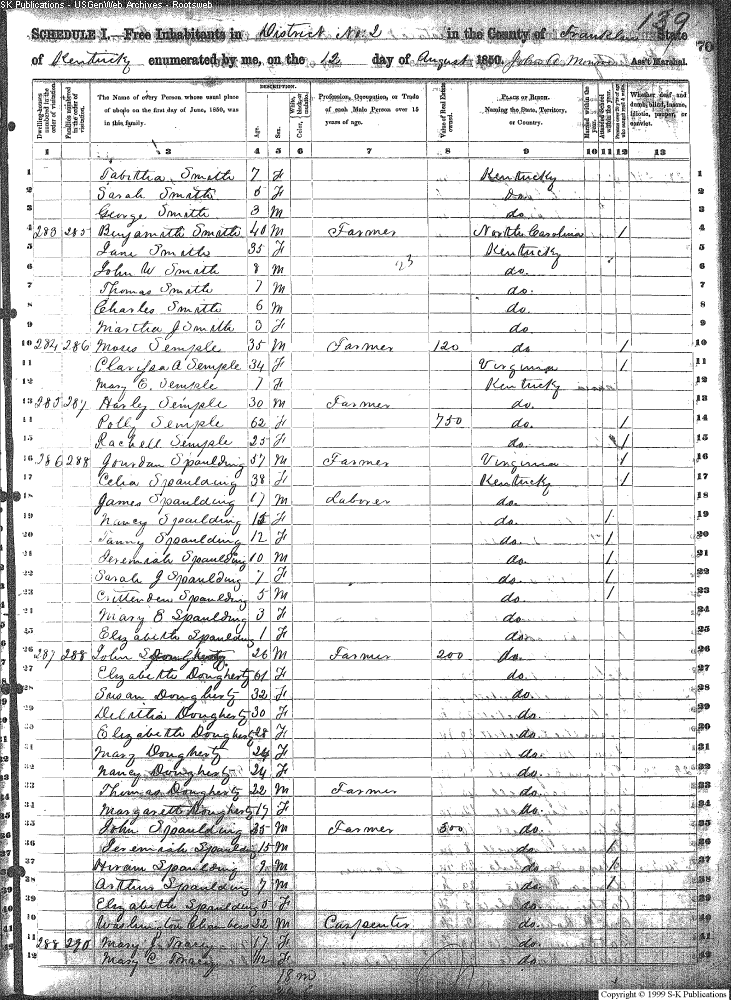 SK Publications - USGenWeb Archives - Rootsweb
139
SCHEDULE I.—Free Inhabitants in District No 2 in the County of Franklin State
70
of Kentucky enumerated by me, on the 12 day of August 1850. John A Monroe Ass't Marshal.
Dwelling-houses numbered in the order of visitation.
Families numbered in the order of visitation.
The Name of every Person whose usual place of abode on the first day of June, 1850, was in this family.
DESCRIPTION.
Age.
Sex.
Color,
Profession, Occupation, or Trade of each Male Person over 15 years of age.
Value of Real Estate owned.
PLACE OF BIRTH. Naming the State, Territory, or Country.
Married within the year.
Whether deaf and dumb, blind, insane, idiotic, pauper, or convict.
1 2 3 4 5 6 7 8 9 10 11 12 13
1 Tabitha Smith 7 F Kentucky 1
2 Sarah Smith 5 F do 2
3 George Smith 3 M do 3
4 283 285 Smith 40 M Farmer North Carolina / 4
5 Jane Smith 35 F Kentucky 5
23
6 John W Smith 8 M do. 6
7 Thomas Smith 7 M do. 7
8 Charles Smith 6 M do. 8
9 Martha J Smith 3 F do 9
10 284 286 Moses Semple 35 M Farmer 120 do / 10
11 Clarissa A Semple 34 F Virginia / 11
12 Mary E. Semple 7 F Kentucky 12
13 285 287 Semple 30 M Farmer do. 13
14 Polly Semple 62 F 750 do. / 14
15 Rachell Semple 25 F do. / 15
16 286 288 Jourdan Spaulding 57 M Farmer Virginia / 16
17 Celia Spaulding 38 F Kentucky / 17
18 James Spaulding 17 M Laborer do. 18
19 Nancy Spaulding 15 F do. / 19
20 Spaulding 12 F do. / 20
21 Jeremiah Spaulding 10 M do. / 21
22 Sarah J Spaulding 7 F do. / 22
23 Crittenden Spaulding 5 M do. / 23
24 Mary E Spaulding 3 F do. 24
25 Elizabeth Spaulding 1 F do. 25
26 287 288 John Dougherty 26 M Farmer 200 do. 26
27 Elizabeth Dougherty 61 F do.
28 Susan Dougherty 32 F do. 28
29 Dougherty 30 F do. 29
30 Elizabeth Dougherty 28 F do. 30
31 Mary Dougherty 26 F do. 31
32 Nancy Dougherty 24 F do. 32
33 Thomas Dougherty 22 M Farmer do. 33
34 Margarett Dougherty 19 F do.
35 John Spaulding 35 M Farmer 500 do. 35
36 Jeremiah Spaulding 15 M do. / 36
37 Hiram Spaulding 9 M do. / 37
38 Arthur Spaulding 7 M do. / 38
39 Elizabeth Spaulding 5 F do. 39
40 Washington Chambers 32 M Carpenter do. 40
41 288 290 Mary J. Tracey 17 F do. 41
42 Mary C Tracey F do. 42
18 m
Copyright © 1999 S-K Publications